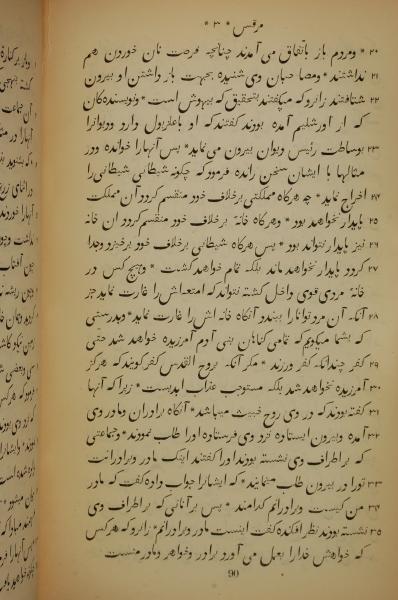 مرقس * ۳ *
۲۰ * ومردم باز باتفاق می آمدند چنانچه فرصت نان خوردن هم
۲۱ نداشتند * ومصاحبان وی شنیده بجهت باز داشتن او بیرون
۲۲ شتافتند زانرو که میگفتند بتحقیق که بیهوش است * ونویسندهکان
که از اورشلیم آمده بودند گفتند که او باعلزبول دارد ودیوانرا
۲۳ بوساطت رئیس دیوان بیرون می نماید * پس آنهارا خوانده ودر
مثالها با ایشان سخن رانده فرمود که چگونه شیطانی شیطانی را
۲۴ اخراج نماید * چه هرگاه مملکتی برخلاف خود منقسم گردد آن مملکت
۲۵ پایدار نخواهد بود * وهرگاه خانهٔ برخلاف خود منقسم گردد ان خانه
۲۶ نیز پایدار نتواند بود * پس هرگاه شیطانی برخلاف خود برخیزد وجدا
۲۷ گردد پایدار نخواهد ماند بلکه تمام خواهد گشت * وهیچ کس در
خانهٔ مردی قوی داخل گشته نتواند که امتعه‌اش را غارت نماید جز
۲۸ آنکه آن مرد توانارا ببندد آنگاه خانه اش را غارت نماید * وبدرستی
که بشما میگویم که تمامی گناهان بنی آدم آمرزیده خواهد شد حتی
۲۹ کفر چندانکه کفر ورزند * مگر آنکه بروح القدس کفر گویند که هرگز
۳۰ آمرزیده نخواهد شد بلکه مستوجب عذاب ابدیست * زیرا که آنها
۳۱ گفته بودند که در وی روح خبیث میباشد * آنگاه برادران ومادر وی
۳۲ آمده وبیرون ایستاده نزد وی فرستاده اورا طلب نمودند * وجماعتی
که بر اطراف وی نشسته بودند اورا گفتند اینک مادر وبرادرانت
۳۳ تورا در بیرون طلب مینمایند * که ایشانرا جواب داده گفت که مادر
۳۴ من کیست وبرادرانم کدامند * پس برآنانی که بر اطراف وی
۳۵ نشسته بودند نظر افکنده گفت اینست مادر وبرادرانم * زانرو که هر کس
که خواهش خدارا بعمل می آورد برادر وخواهر ومادر منست
90